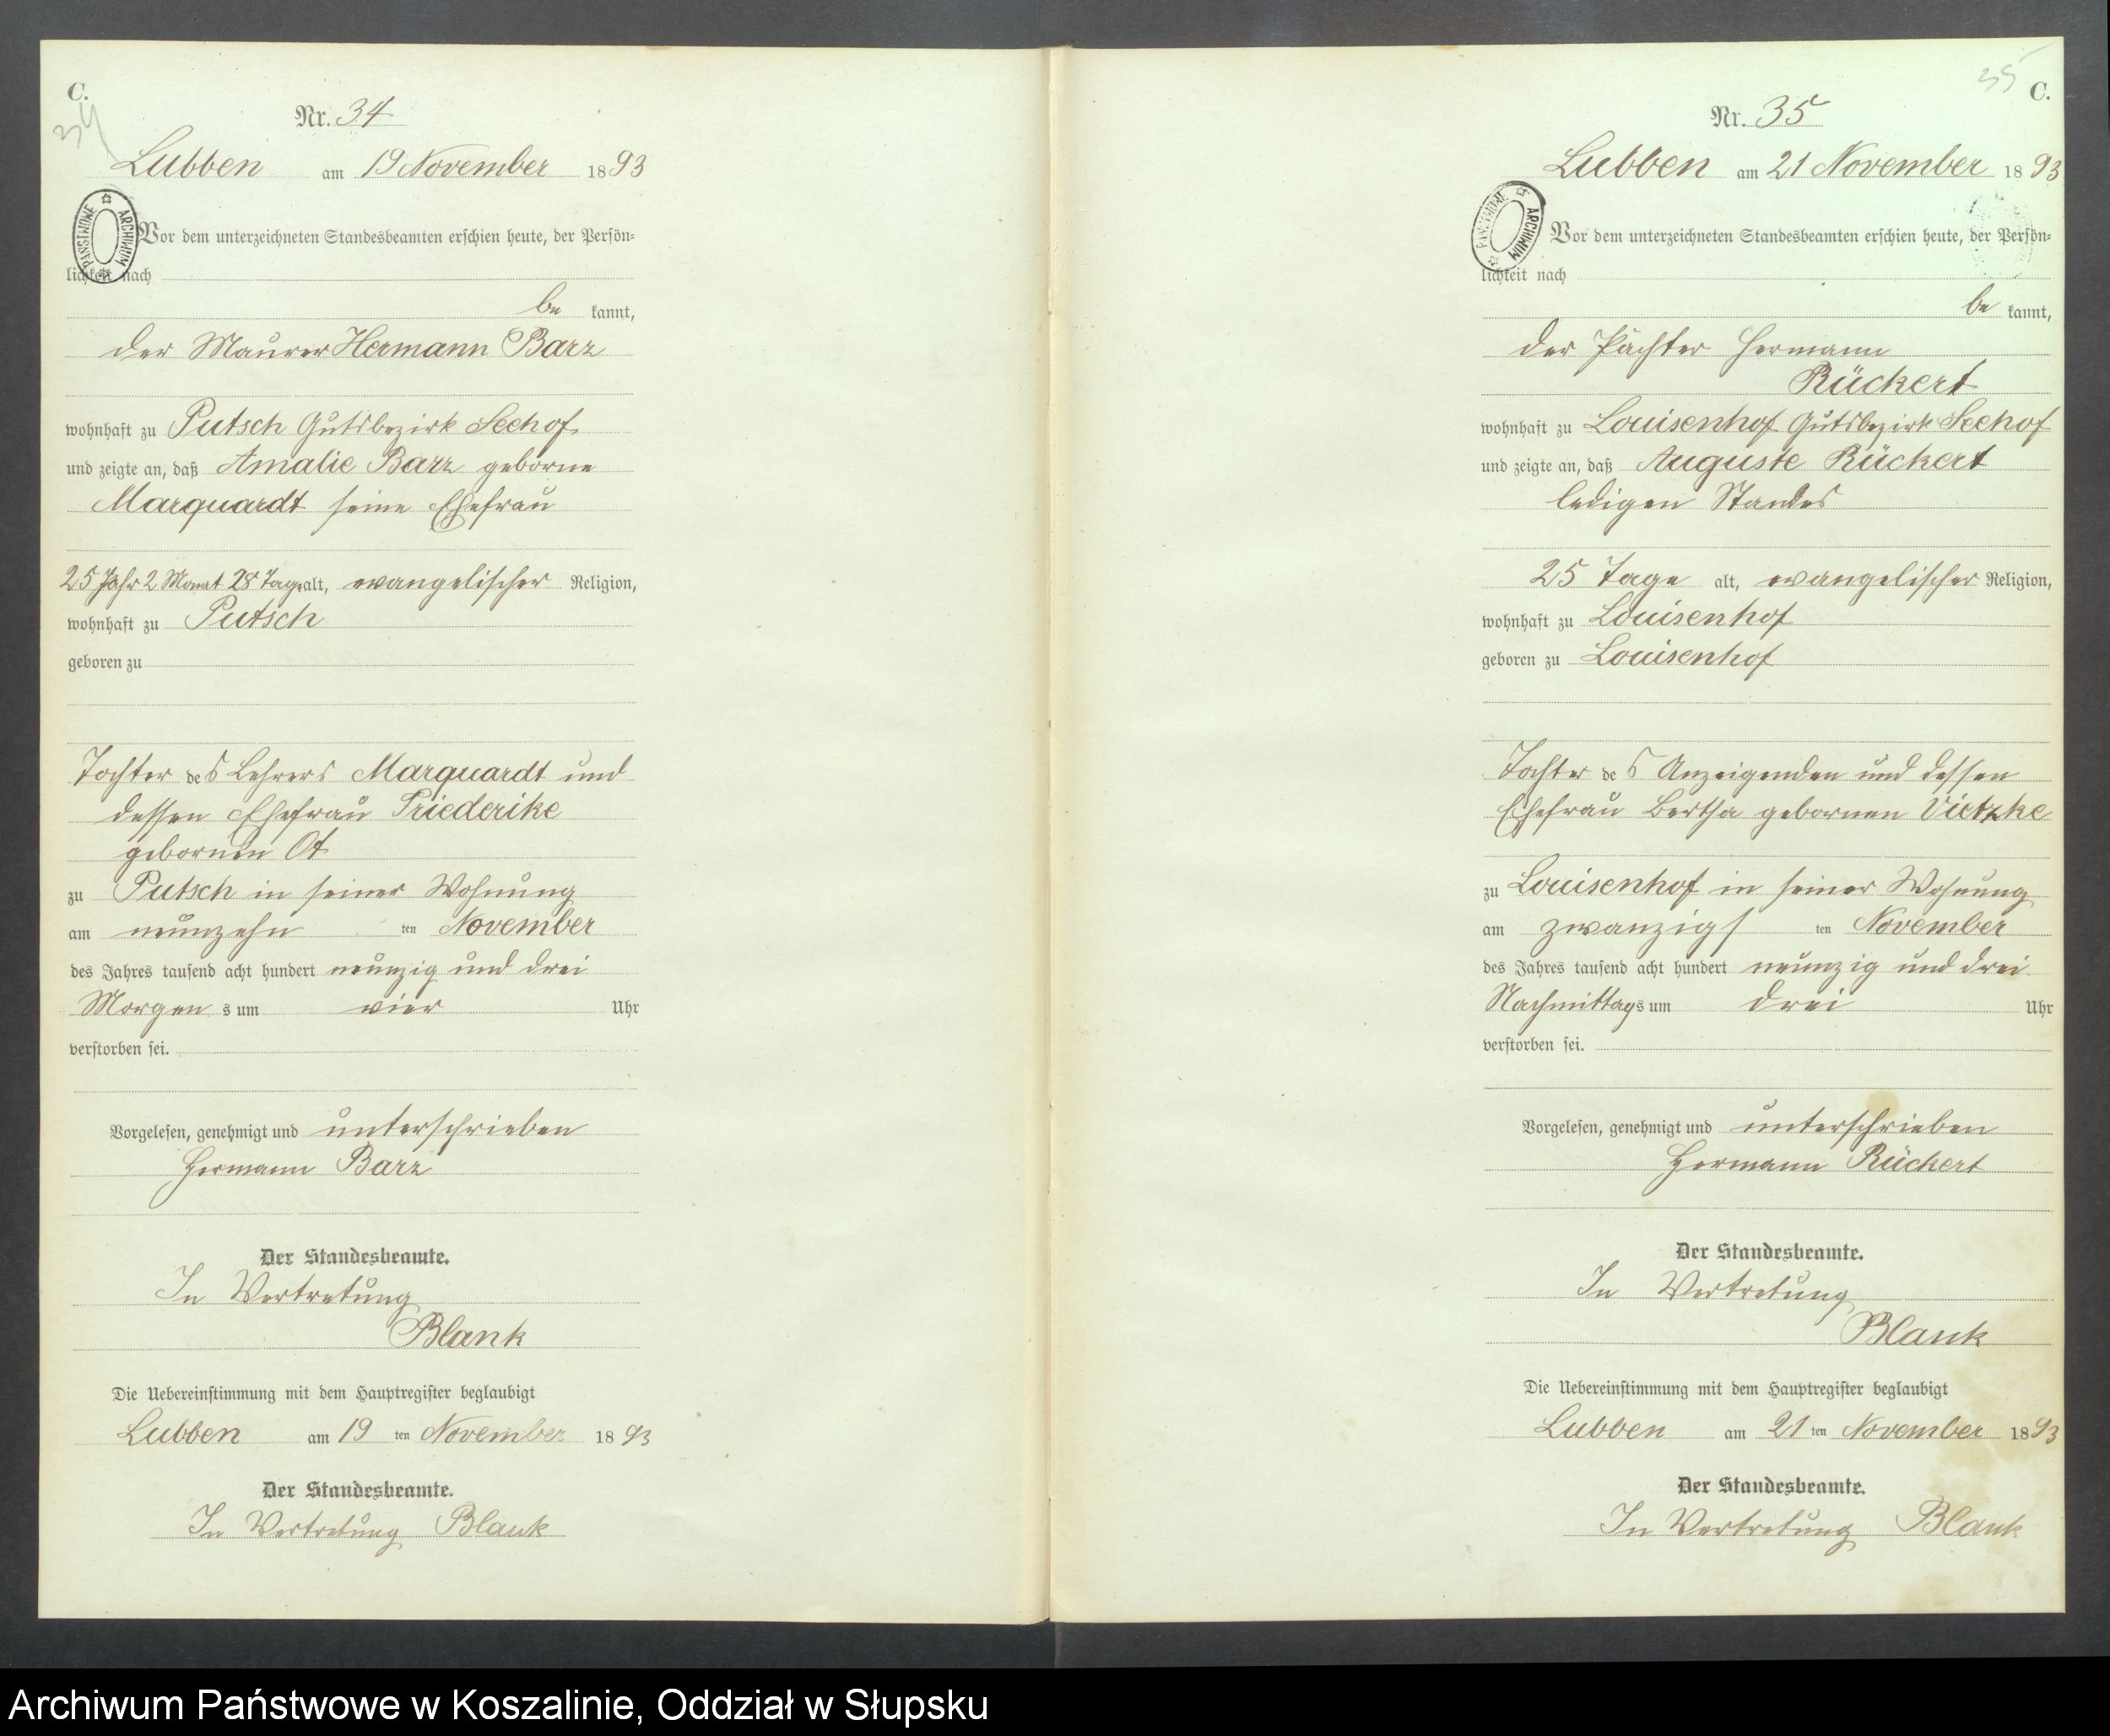 C.
34
Nr. 34
Lubben am 19 November 1893
PAŃSTWOWE ARCHIWUM
Vor dem unterzeichneten Standesbeamten erschien heute, der Persön-
lichkeit nach
be kannt,
der Maurer Hermann Barz
wohnhaft zu Putsch Gutsbezirk Seehof
und zeigte an, daß Amalie Barz geborne
Marquardt seine Ehefrau
25 Jahr 2 Monat 28 Tage alt, evangelischer Religion,
wohnhaft zu Putsch
geboren zu
Tochter des Lehrers Marquardt und
dessen Ehefrau Friederike
gebornen Ot
zu Putsch in seiner Wohnung
am neunzehn ten November
des Jahres tausend acht hundert neunzig und drei
Morgen s um vier Uhr
verstorben sei.
Vorgelesen, genehmigt und unterschrieben
Hermann Barz
Der Standesbeamte.
In Vertretung
Blank
Die Uebereinstimmung mit dem Hauptregister beglaubigt
Lubben am 19 ten November 1893
Der Standesbeamte.
In Vertretung Blank
35 C.
Nr. 35
Lubben am 21 November 1893
PAŃSTWOWE ARCHIWUM
Vor dem unterzeichneten Standesbeamten erschien heute, der Persön-
lichkeit nach
be kannt,
der Pächter Hermann
Rückert
wohnhaft zu Louisenhof Gutsbezirk Seehof
und zeigte an, daß Auguste Rückert
ledigen Standes
25 Tage alt, evangelischer Religion,
wohnhaft zu Louisenhof
geboren zu Louisenhof
Tochter des Anzeigenden und dessen
Ehefrau Bertha gebornen Vietzke
zu Louisenhof in seiner Wohnung
am zwanzigs ten November
des Jahres tausend acht hundert neunzig und drei
Nachmittags um drei Uhr
verstorben sei.
Vorgelesen, genehmigt und unterschrieben
Hermann Rückert
Der Standesbeamte.
In Vertretung
Blank
Die Uebereinstimmung mit dem Hauptregister beglaubigt
Lubben am 21 ten November 1893
Der Standesbeamte.
In Vertretung Blank
Archiwum Państwowe w Koszalinie, Oddział w Słupsku